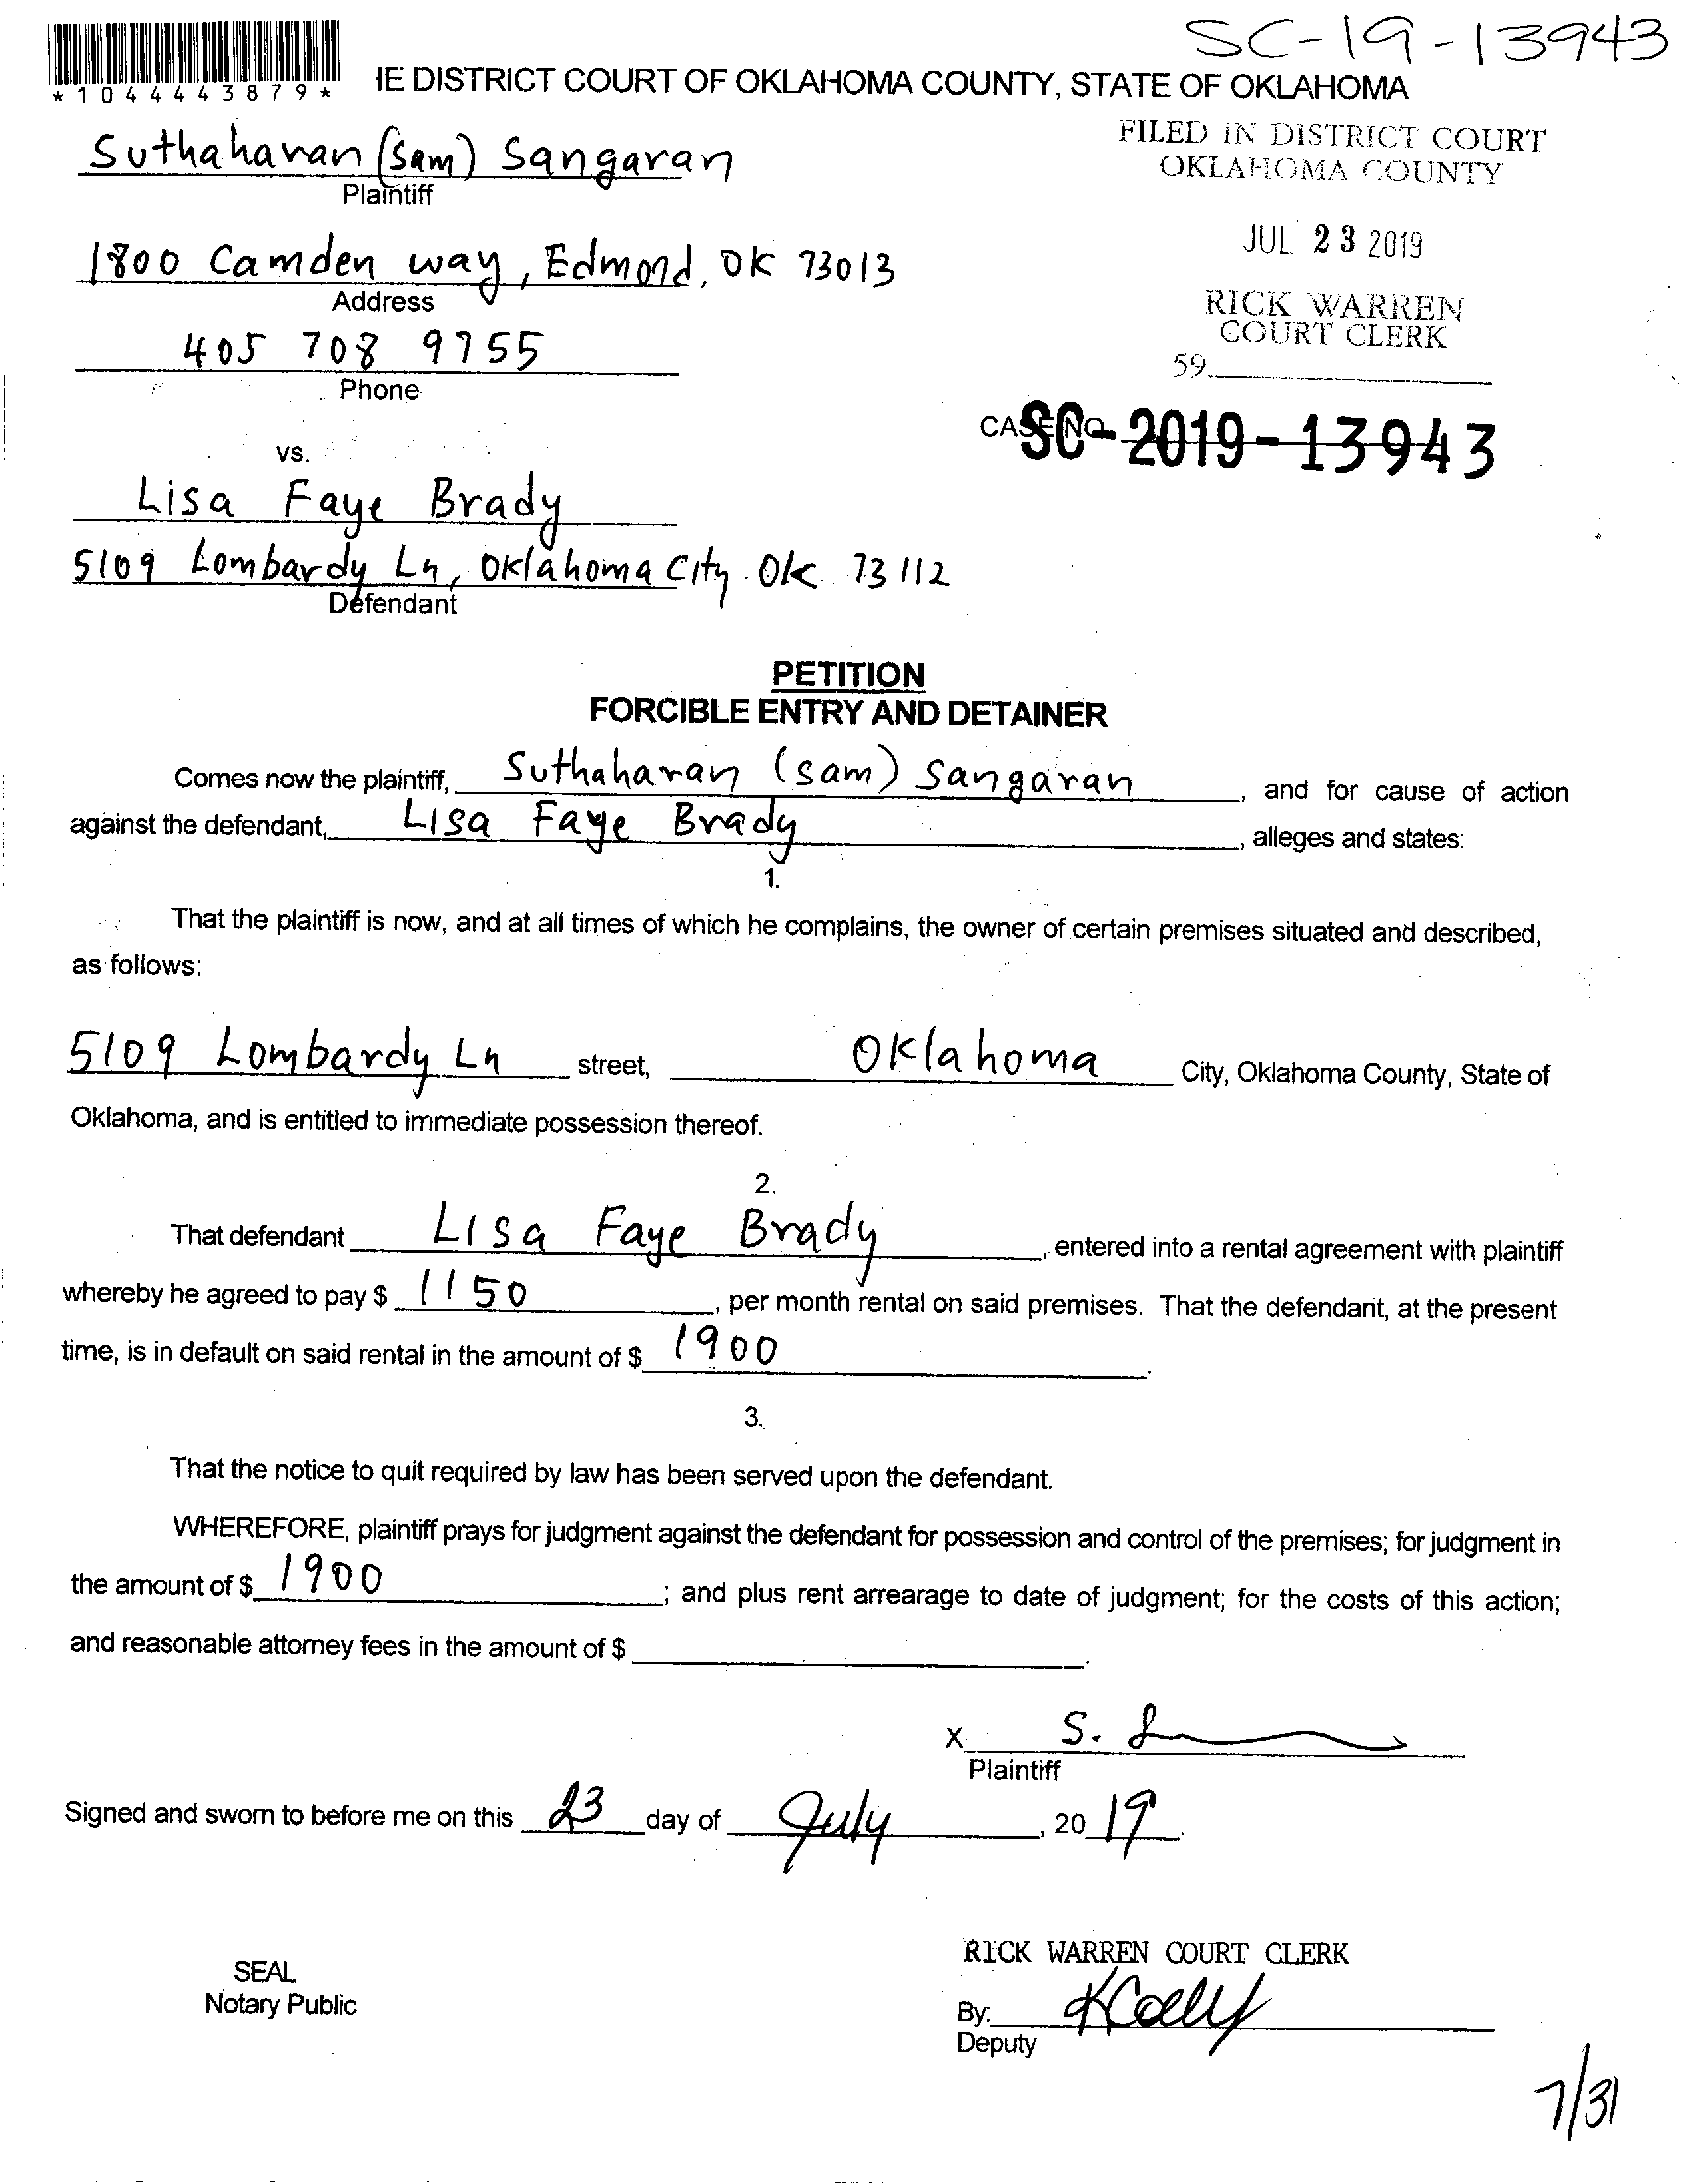 SC-19-13943
*1044443879*
IE DISTRICT COURT OF OKLAHOMA COUNTY, STATE OF OKLAHOMA
FILED IN DISTRICT COURT
OKLAHOMA COUNTY
Suthaharan (Sam) Sangaran
Plaintiff
JUL 23 2019
1800 Camden way, Edmond, OK 73013
Address
RICK WARREN
COURT CLERK
405 708 9755
59
Phone
CASE NO. SC-2019-13943
vs.
Lisa Faye Brady
5109 Lombardy Ln, Oklahoma City OK 73112
Defendant
PETITION
FORCIBLE ENTRY AND DETAINER
Comes now the plaintiff, Suthaharan (sam) Sangaran, and for cause of action
against the defendant, Lisa Faye Brady, alleges and states:
1.
That the plaintiff is now, and at all times of which he complains, the owner of certain premises situated and described,
as follows:
5109 Lombardy Ln street, Oklahoma City, Oklahoma County, State of
Oklahoma, and is entitled to immediate possession thereof.
2.
That defendant Lisa Faye Brady, entered into a rental agreement with plaintiff
whereby he agreed to pay $ 1150, per month rental on said premises. That the defendant, at the present
time, is in default on said rental in the amount of $ 1900.
3.
That the notice to quit required by law has been served upon the defendant.
WHEREFORE, plaintiff prays for judgment against the defendant for possession and control of the premises; for judgment in
the amount of $ 1900; and plus rent arrearage to date of judgment; for the costs of this action;
and reasonable attorney fees in the amount of $ .
X S.
Plaintiff
Signed and sworn to before me on this 23 day of July, 2019.
RICK WARREN COURT CLERK
SEAL
Notary Public
By:
Deputy
7/31